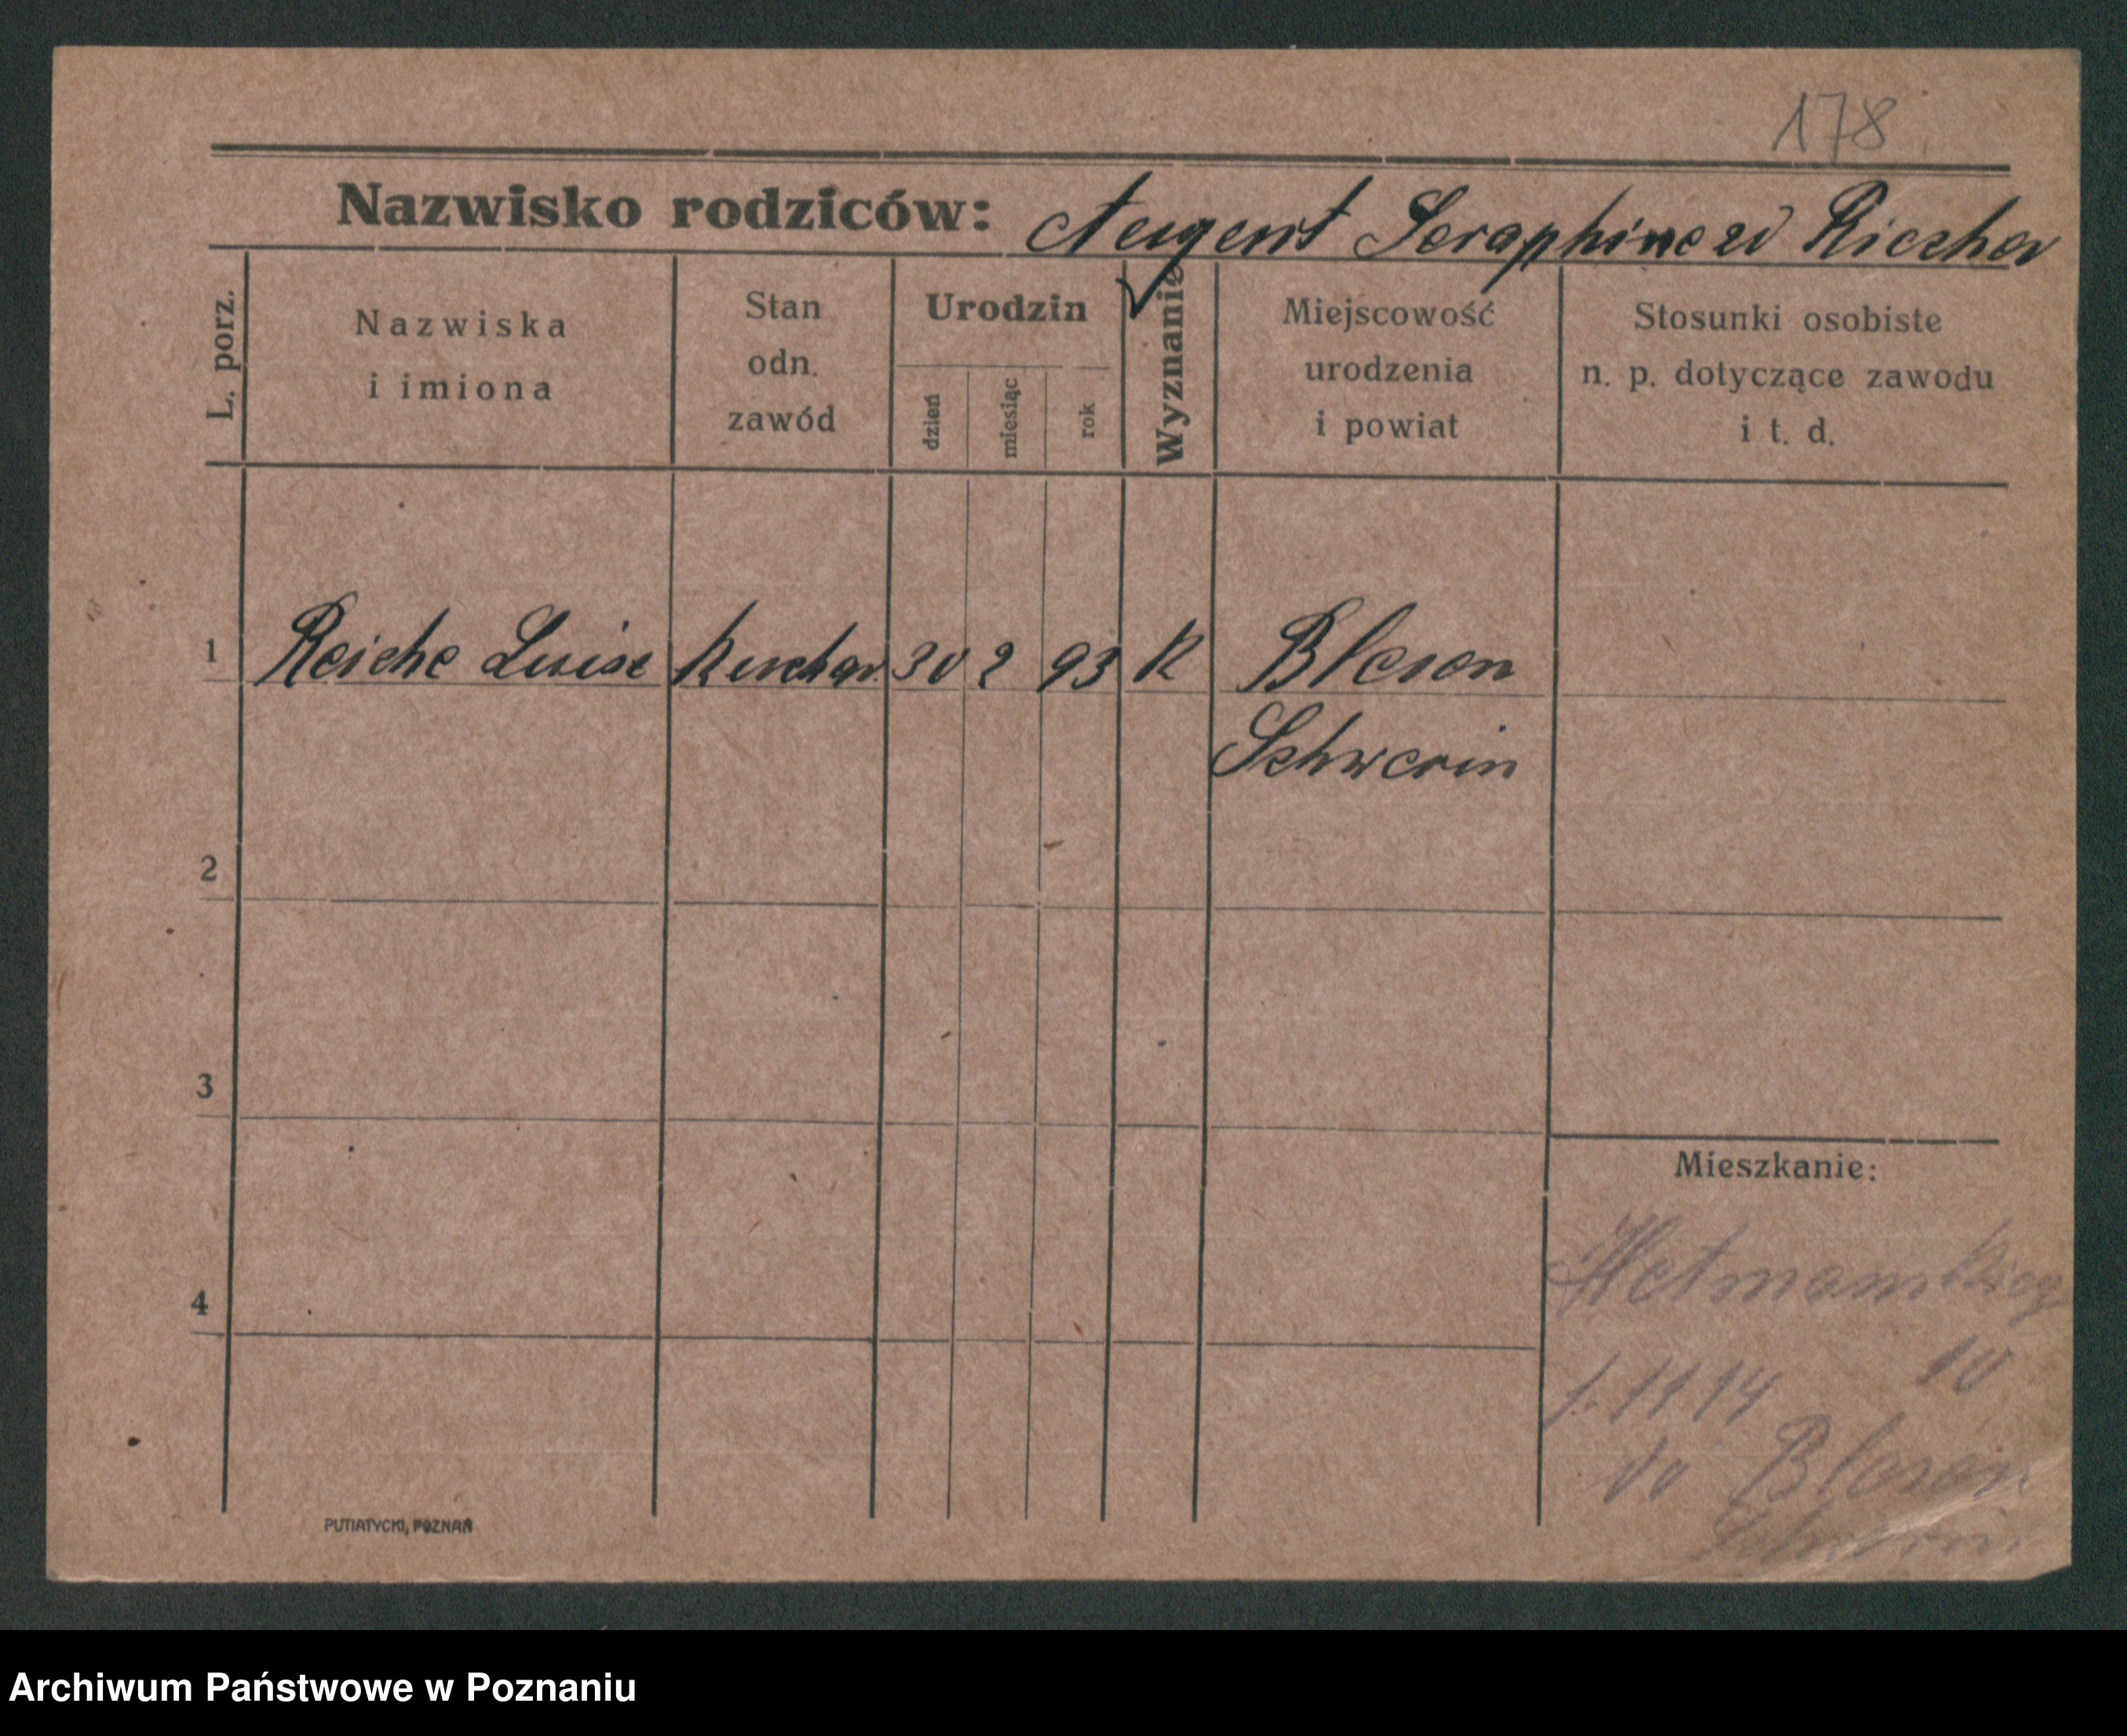 178
Nazwisko rodziców: Neugent Seraphine zd Riesha
L. porz.
Nazwiska
i imiona
Stan
odn.
zawód
Urodzin
dzień
miesiąc
rok
Wyznanie
Miejscowość
urodzenia
i powiat
Stosunki osobiste
n. p. dotyczące zawodu
i t. d.
1 Reiche Luise 30 2 93 K Blesen
Schwerin
2
3
4
Mieszkanie:
10
1.11 14
do Blesen
Schwerin
PUTIATYCKI, POZNAŃ
Archiwum Państwowe w Poznaniu